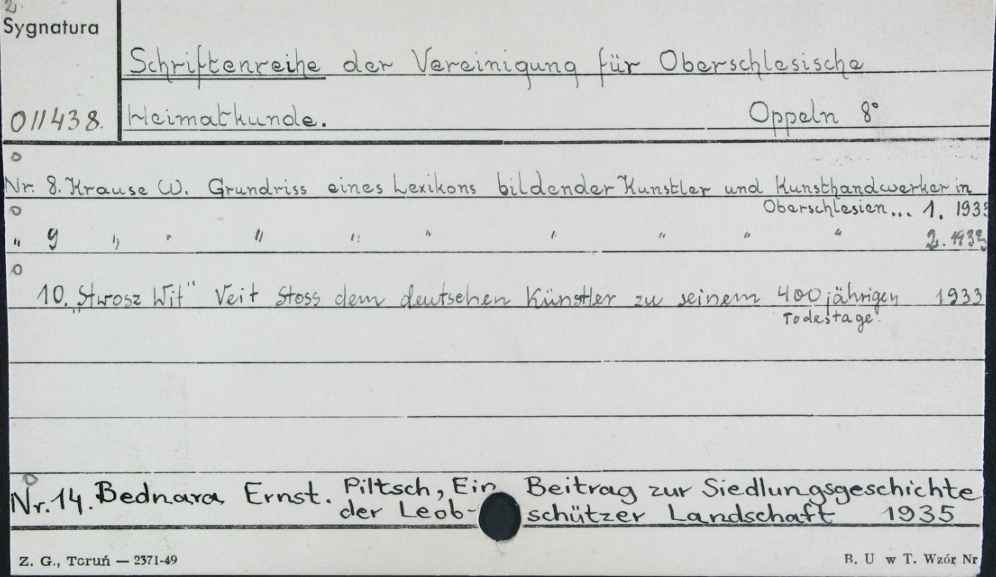 2
Sygnatura
Schriftenreihe der Vereinigung für Oberschlesische
011438. Heimatkunde. Oppeln 8°
Nr. 8. Krause W. Grundriss eines Lexikons bildender Kunstler und Kunsthandwerker in
Oberschlesien... 1. 1933
" 9 " " " " " " " " " 2. 1933
10. "Stwosz Wit" Veit Stoss dem deutschen Künstler zu seinem 400 jährigen 1933
Todestage.
Nr. 14. Bednara Ernst. Piltsch, Ein Beitrag zur Siedlungsgeschichte
der Leob- schützer Landschaft 1935
Z. G., Toruń — 2371-49 B. U w T. Wzór Nr